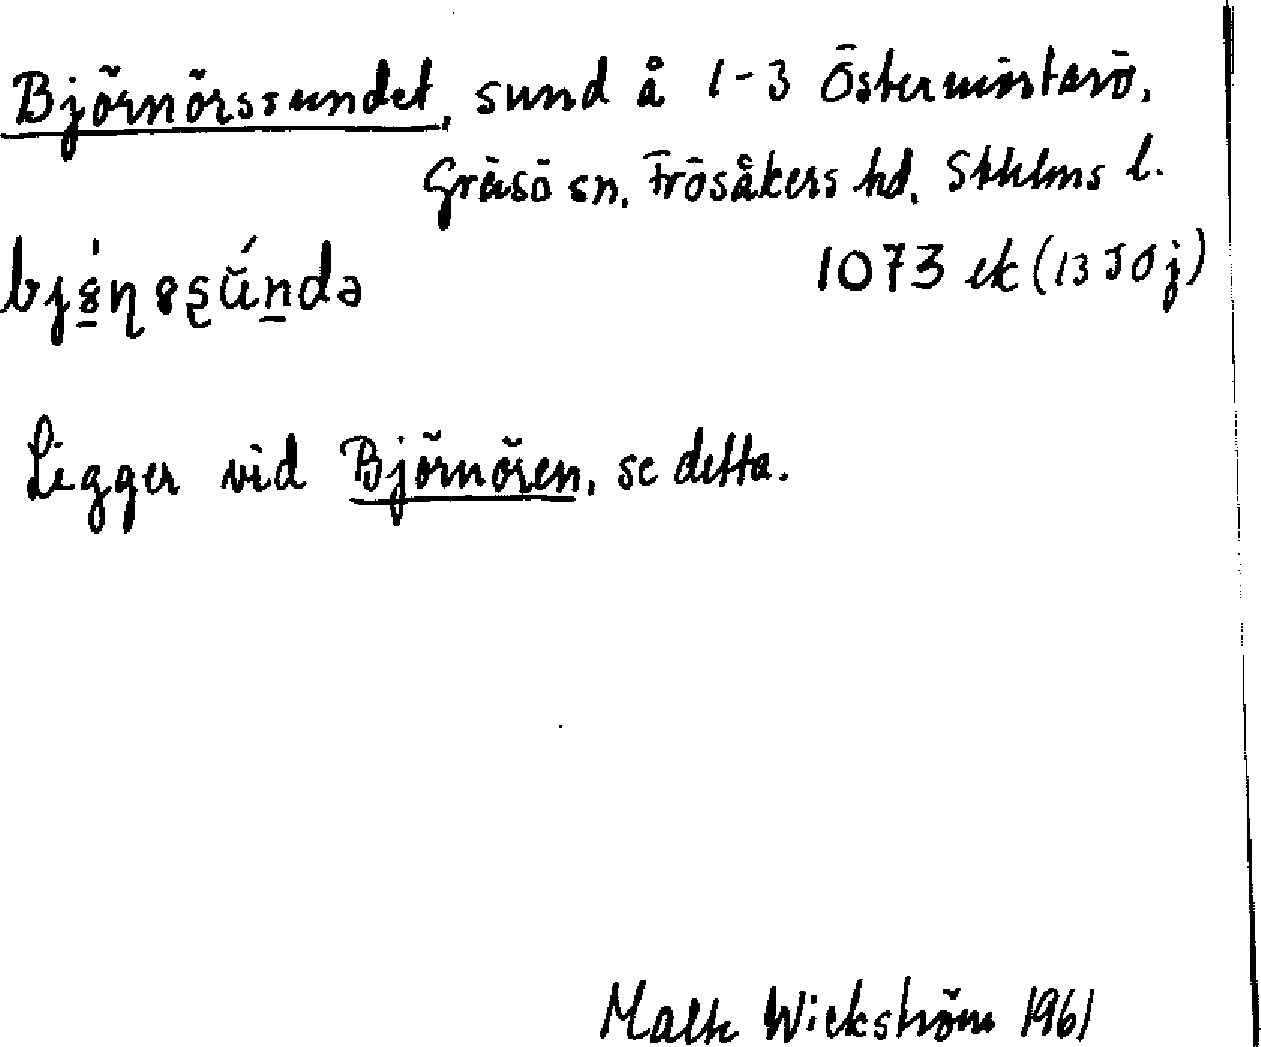 Björnörssundet, sund å 1-3 Östermörtarö,
Gräsö sn, Frösåkers hd, Sthlms l.
1073 ek (13 J 0 j)
Ligger vid Björnören, se detta.
Malte Wickström 1961